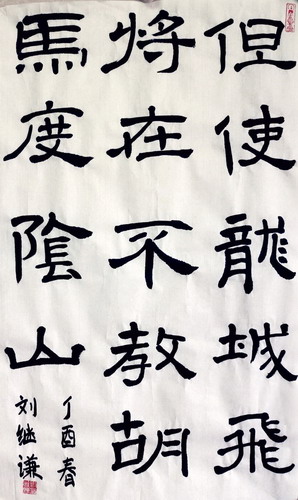 但使龍城飛
將在不教胡
馬度陰山
丁酉春
刘继谦